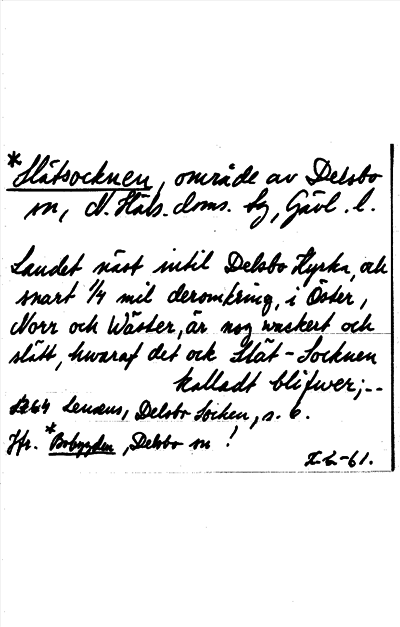 *Slätsocknen, område av Delsbo
sn, N. Häls. doms. sg, Gävl. l.
Landet näst intil Delsbo Kyrka, och
snart 1/4 mil deromkring, i Öster,
Norr och Wäster, är nog wackert och
slätt, hwaraf det ock Slät-Socknen
kalladt blifwer;--
1764 Lenæus, Delsbo Sochen, s. 6.
Jfr. *Bobygden, Delsbo sn!
-61.